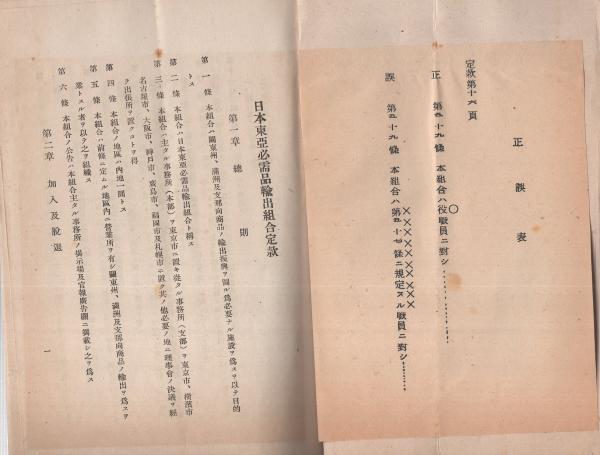 正誤表
定款第十六頁
正 第五十九條 本組合ハ役職員ニ對シ………
誤 第五十九條 本組合ハ第五十七條ニ規定スル職員ニ對シ………
日本東亞必需品輸出組合定款
第一章 總則
第一條 本組合ハ關東州、滿洲及支那向商品ノ輸出振興ヲ圖ル爲必要ナル施設ヲ爲スヲ以テ目的
トス
第二條 本組合ハ日本東亞必需品輸出組合ト稱ス
第三條 本組合ハ主タル事務所(本部)ヲ東京市ニ置キ從タル事務所(支部)ヲ東京市、橫濱市
名古屋市、大阪市、神戶市、廣島市、福岡市及札幌市ニ置ク其ノ他必要ノ地ニ理事會ノ決議ヲ經
テ出張所ヲ置クコトヲ得
第四條 本組合ノ地區ハ內地一圓トス
第五條 本組合ハ前條ニ定ムル地區內ニ營業所ヲ有シ關東州、滿洲及支那向商品ノ輸出ヲ爲スヲ
業トスル者ヲ以テ之ヲ組織ス
第六條 本組合ノ公告ハ本組合主タル事務所ノ揭示場及官報廣告欄ニ揭載シ之ヲ爲ス
第二章 加入及脫退
一